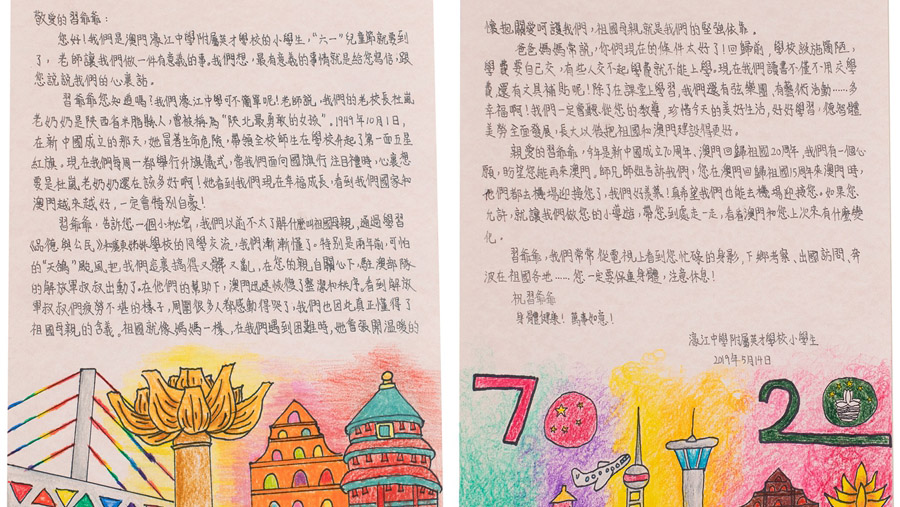 敬愛的習爺爺：
您好！我們是澳門濠江中學附屬英才學校的小學生，“六一”兒童節就要到
了，老師讓我們做一件有意義的事。我們想，最有意義的事情就是給您寫信，跟
您說說我們的心裏話。
習爺爺您知道嗎？我們濠江中學可不簡單呢！老師說，我們的老校長杜嵐
老奶奶是陝西省米脂縣人，曾被稱為“陝北最勇敢的女孩”。1949年10月1日，
在新中國成立的那天，她冒著生命危險，帶領全校師生在學校升起了第一面五星
紅旗。現在我們每周一都舉行升旗儀式，當我們面向國旗行注目禮時，心裏想
要是杜嵐老奶奶還在該多好啊！她看到我們現在幸福成長，看到我們國家和
澳門越來越好，一定會特別自豪！
習爺爺，告訴您一個小秘密，我們以前不太了解什麼叫祖國母親，通過學習
《品德與公民》和廣東姊妹學校的同學交流，我們漸漸懂了。特別是兩年前，可怕
的“天鴿”颱風把我們這裏搞得又髒又亂，在您的親自關心下，駐澳部隊
的解放軍叔叔出動了。在他們的幫助下，澳門迅速恢復了整潔和秩序。看到解放
軍叔叔們疲勞不堪的樣子，周圍很多人都感動得哭了，我們也因此真正懂得了
祖國母親的含義。祖國就像媽媽一樣，在我們遇到困難時，她會張開溫暖的
懷抱，關愛呵護我們，祖國母親就是我們的堅強依靠。
爸爸媽媽常說，你們現在的條件太好了！回歸前，學校設施簡陋，
學費要自己交，有些人交不起學費就不能上學。現在我們讀書不僅不用交學
費，還有文具補貼呢！除了在課堂上學習，我們還有弦樂團，有藝術活動……多
幸福啊！我們一定會聽從您的教導，珍惜今天的美好生活，好好學習，德智體
美勞全面發展，長大以後把祖國和澳門建設得更好。
親愛的習爺爺，今年是新中國成立70周年、澳門回歸祖國20周年，我們有一個心
願，盼望您能再來澳門。師兄師姐告訴我們，您在澳門回歸祖國15周年來澳門時，
他們都去機場迎接您了，我們好羨慕！真希望我們也能去機場迎接您。如果您
允許，就讓我們做您的小導遊，帶您到處走一走，看看澳門和您上次來有什麼變
化。
習爺爺，我們常常從電視上看到您忙碌的身影，下鄉考察、出國訪問、奔
波在祖國各地……您一定要保重身體，注意休息！
祝習爺爺
身體健康！萬事如意！
濠江中學附屬英才學校小學生
2019年5月14日
70
20